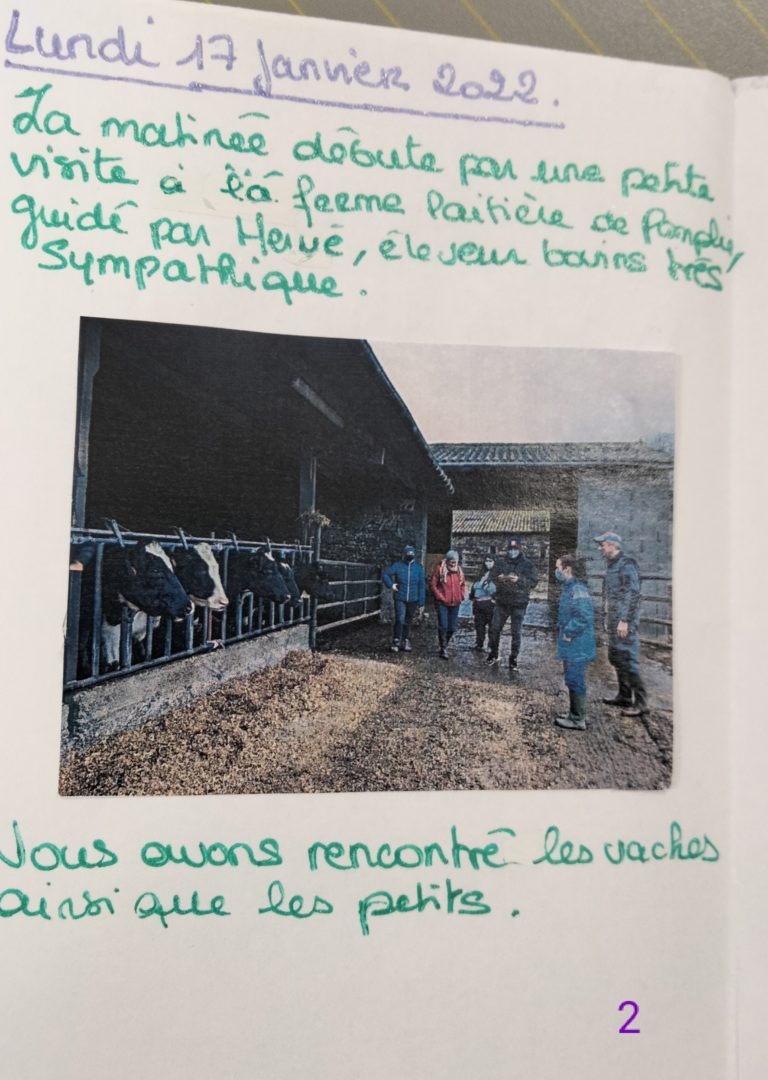 Lundi 17 Janvier 2022.
La matinée débute par une petite
visite à la ferme laitière de
guidé par Hervé, éleveur bovins très
sympathique.
Nous avons rencontré les vaches
ainsi que les petits.
2